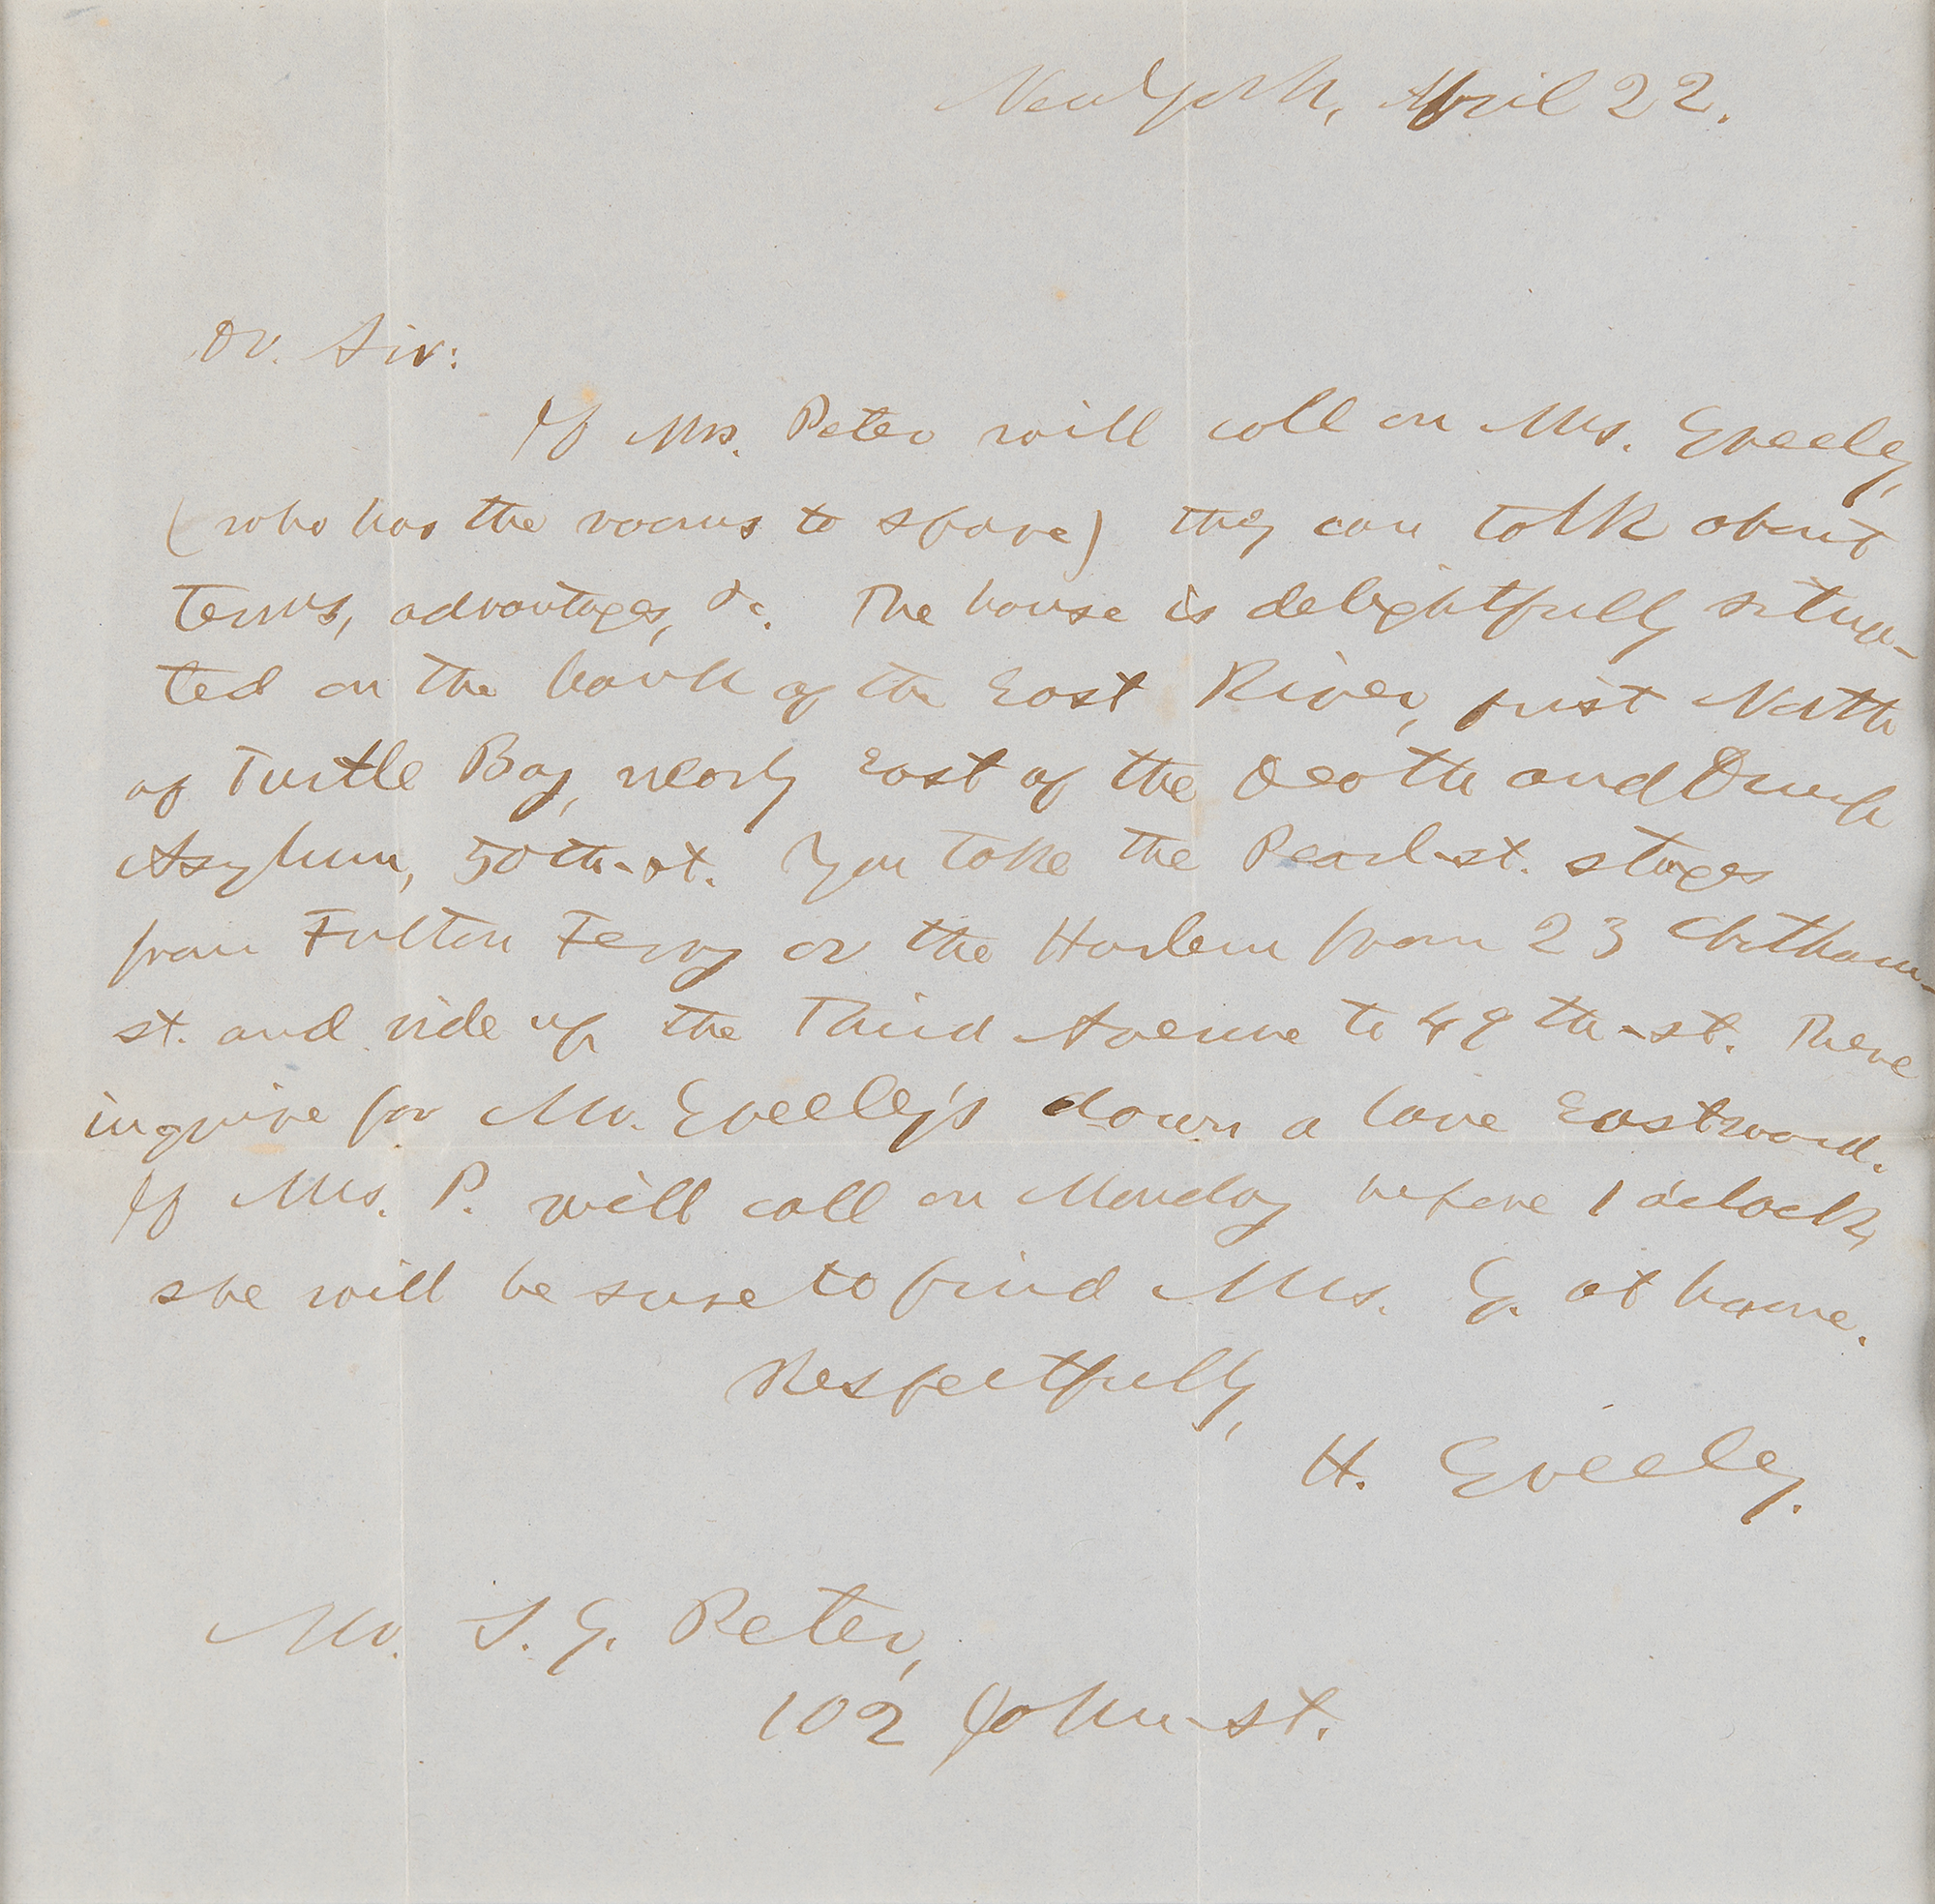 New York, April 22.
Dr. Sir:
If Mrs. Peter will call on Mrs. Greeley,
(who has the rooms to spare) they can talk about
terms, advantages, &c. The house is delightfully situa-
ted on the bank of the East River, just North
of Turtle Bay, nearly East of the Deaf and Dumb
Asylum, 50th-st. You take the Pearl-st. stages
from Fulton Ferry or the Harlem from 23 Chatham-
st. and ride up the Third Avenue to 49th-st. There
inquire for Mr. Greeley's down a lane Eastward.
If Mrs. P. will call on Monday before 1 o'clock,
she will be sure to find Mrs. G. at home.
Respectfully,
H. Greeley.
Mr. S. G. Peter,
102 John-st.